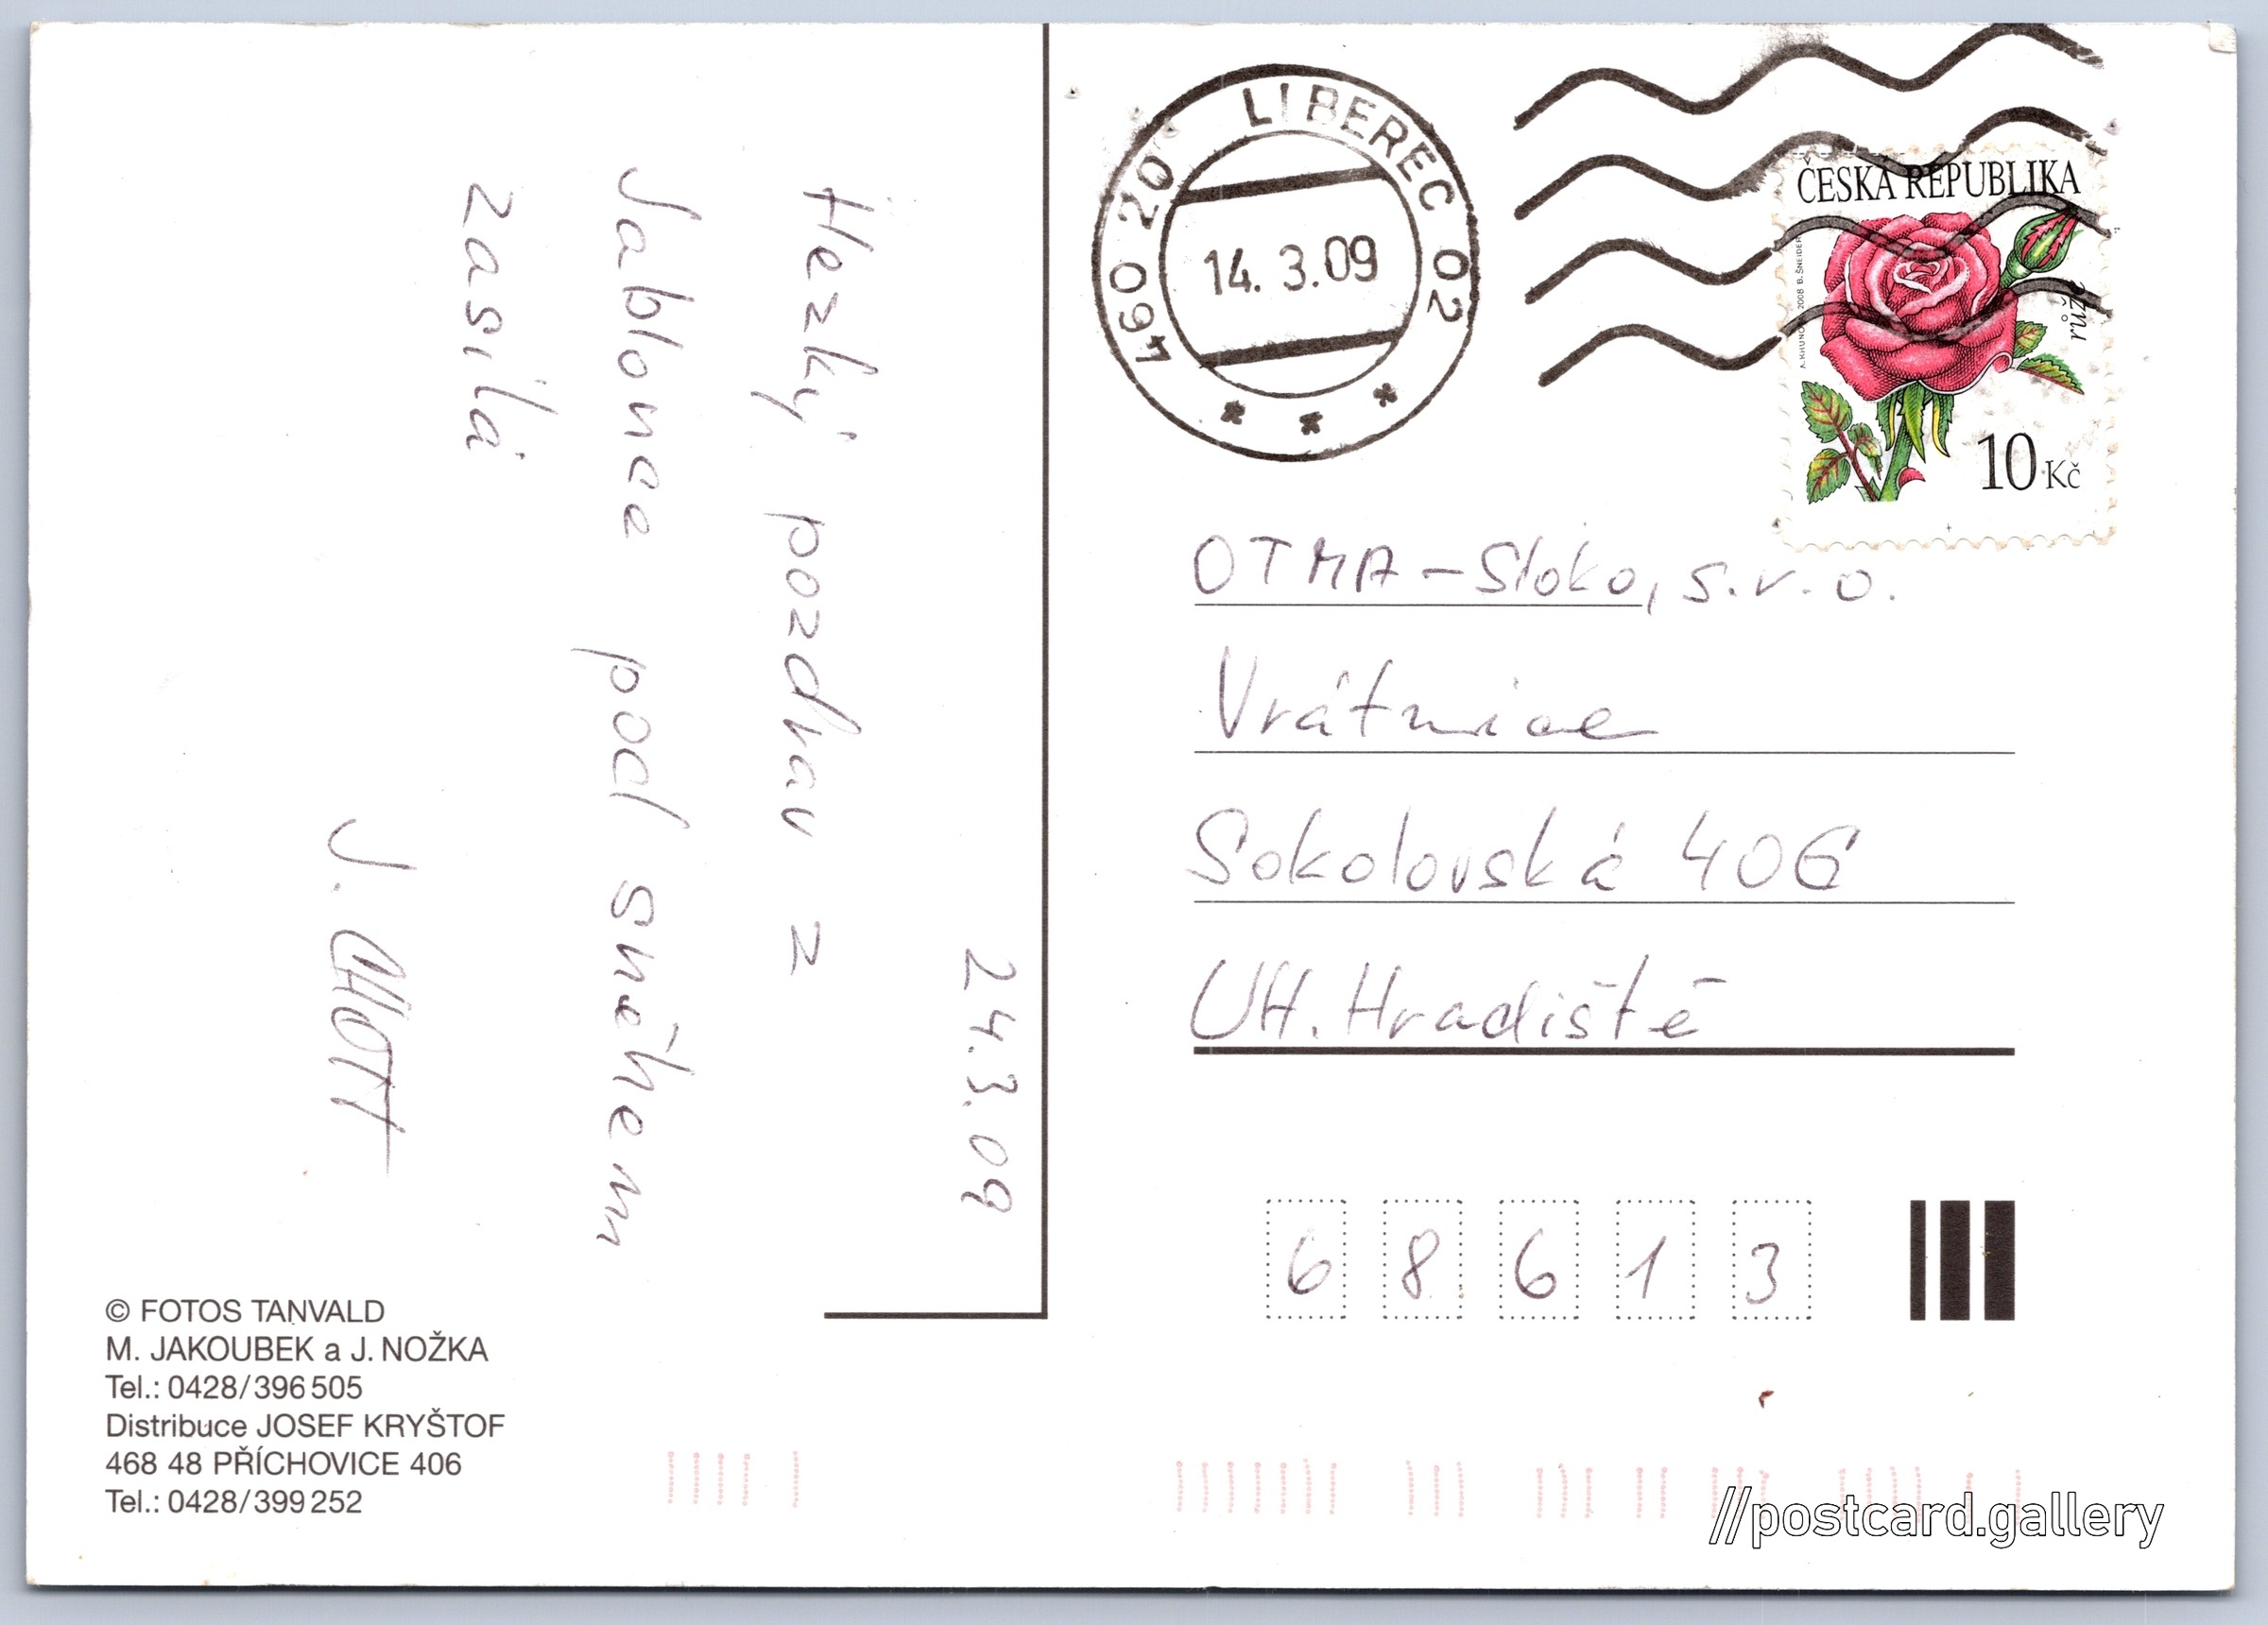 24.3.09
Hezký pozdrav z
Jablonce pod sněhem
zasílá
© FOTOS TANVALD
M. JAKOUBEK a J. NOŽKA
Tel.: 0428/396 505
Distribuce JOSEF KRYŠTOF
468 48 PŘÍCHOVICE 406
Tel.: 0428/399 252
460 20 LIBEREC 02
14. 3.09
ČESKÁ REPUBLIKA
růže
10 Kč
OTMA-Sloko, s.r.o.
Vrátnice
Sokolovská 406
UH. Hradiště
68613
//postcard.gallery